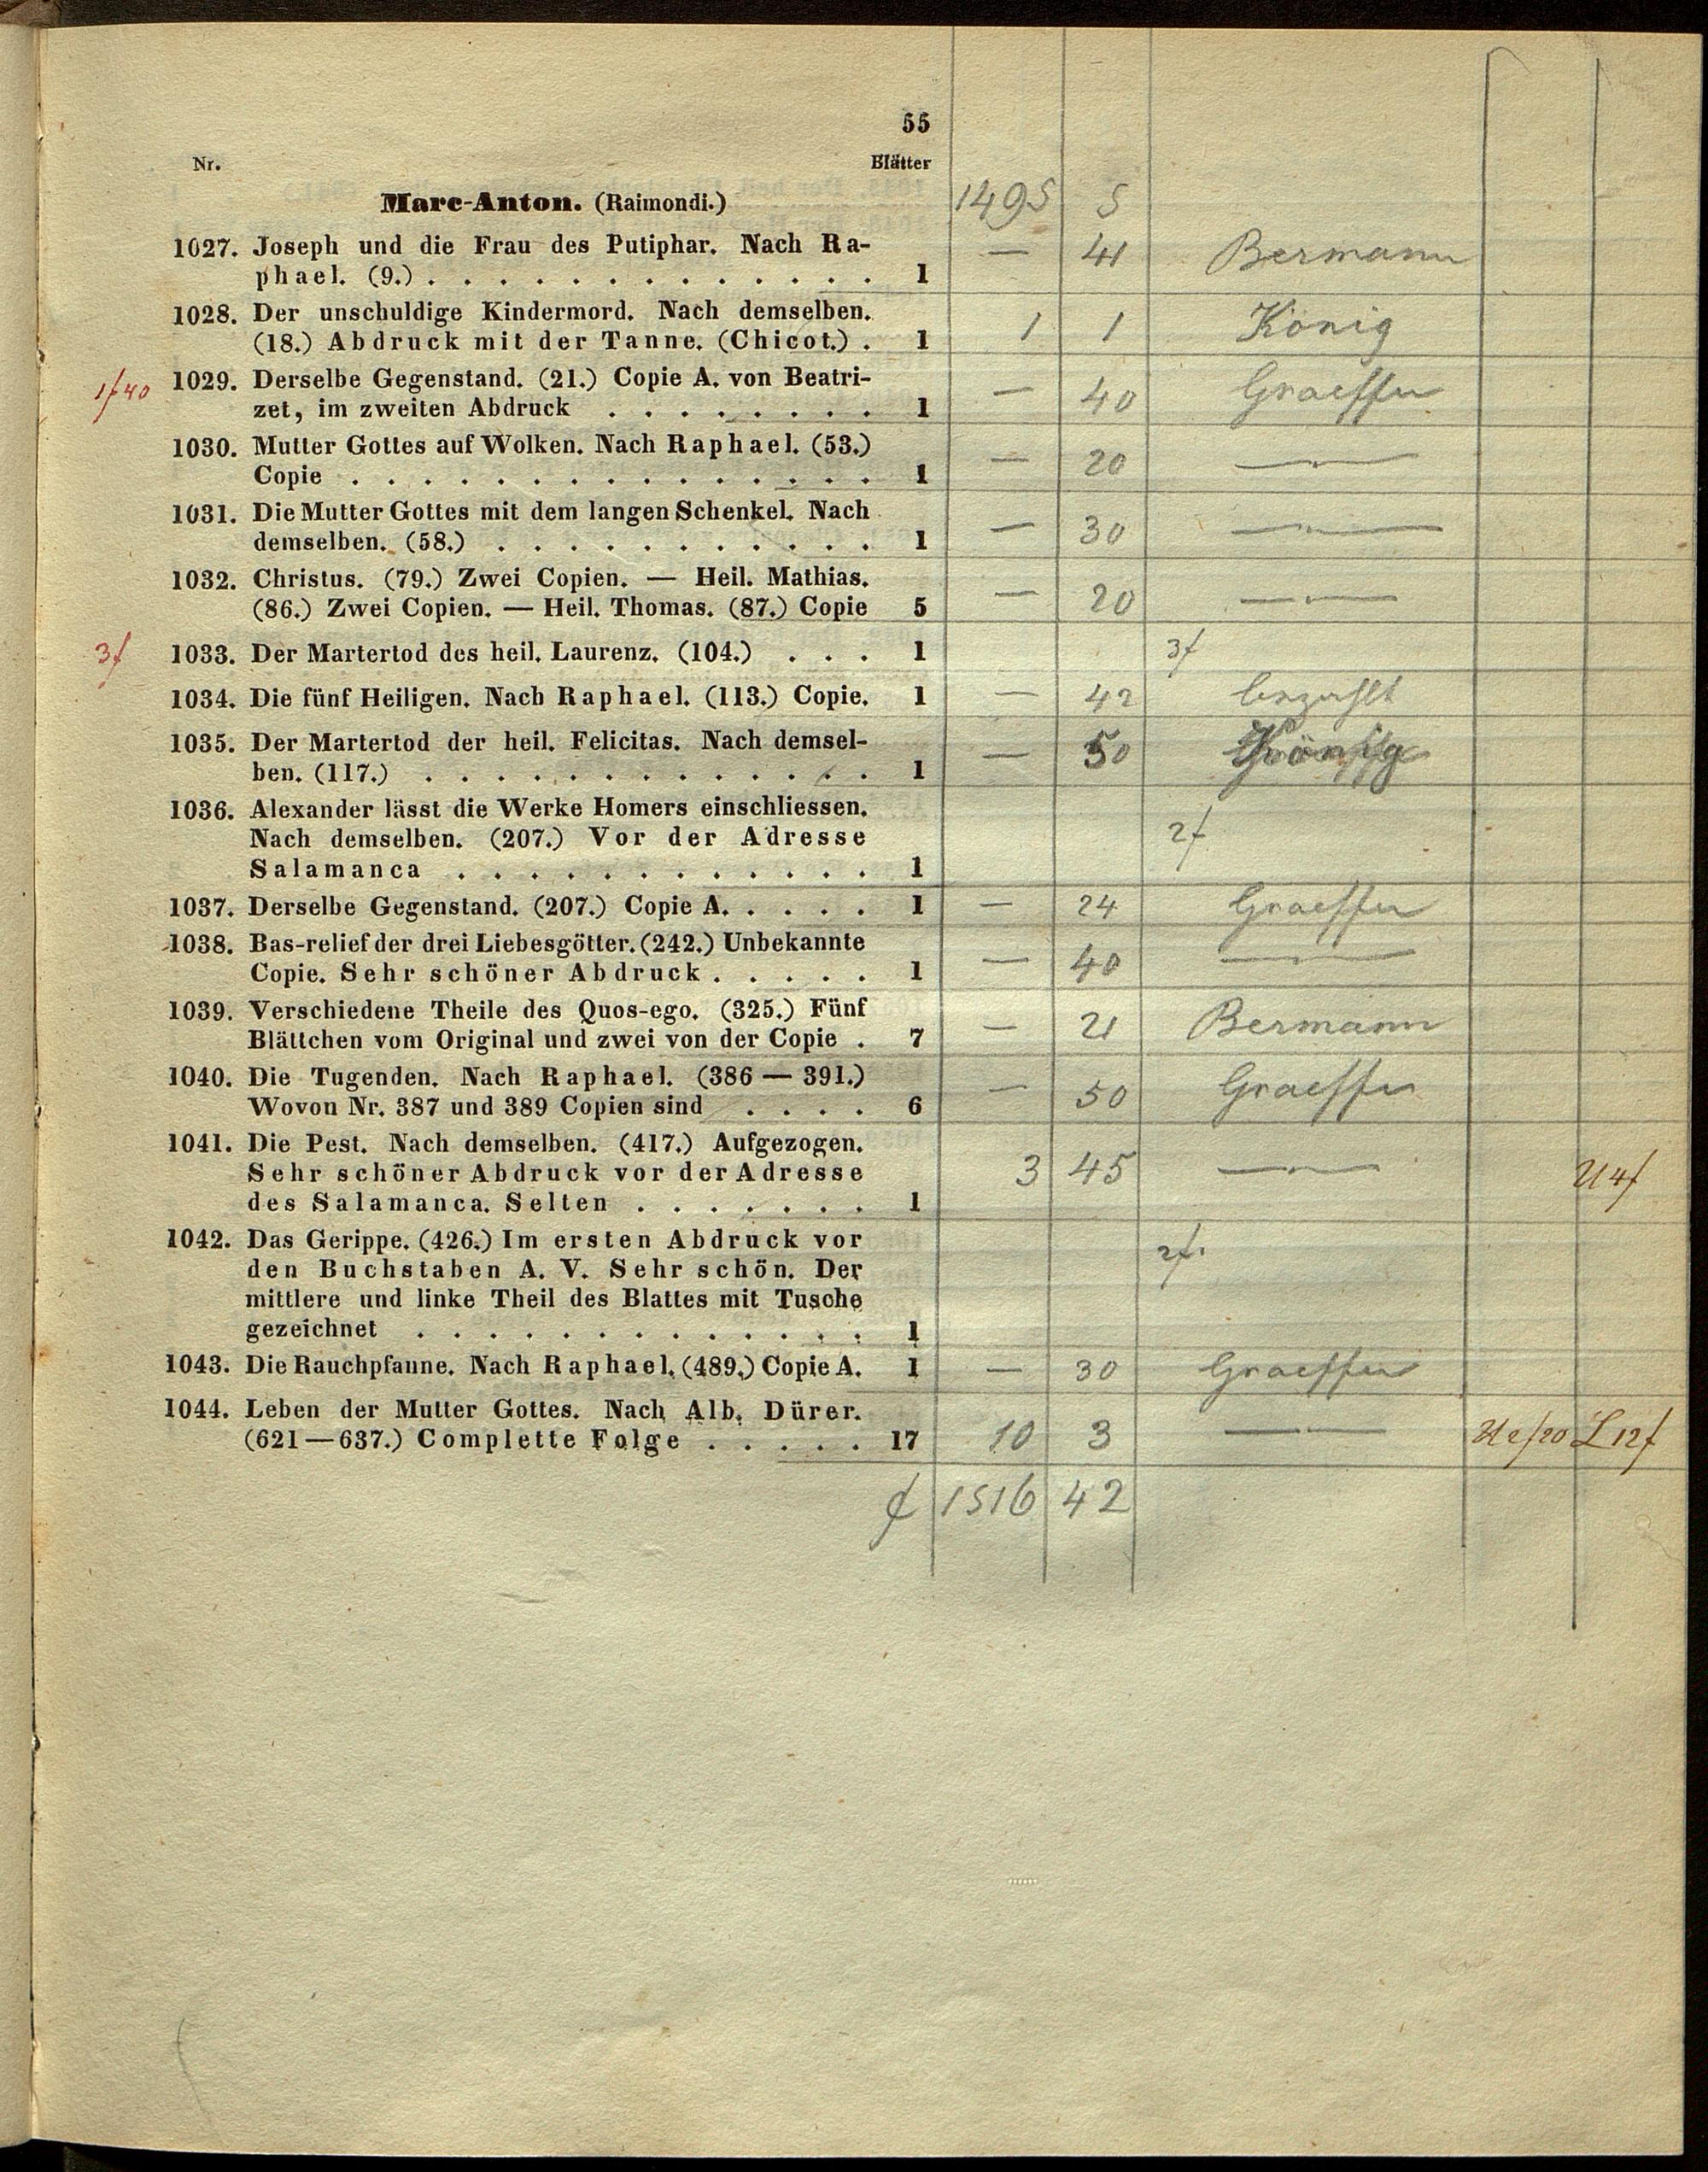 55
Nr. Blätter
Marc-Anton. (Raimondi.) 1495 5
1027. Joseph und die Frau des Putiphar. Nach Ra- — 41 Bermann
phael. (9.) . . . . . . . . . . . . . 1
1028. Der unschuldige Kindermord. Nach demselben. 1 1 König
(18.) Abdruck mit der Tanne. (Chicot.) . 1
1f40 1029. Derselbe Gegenstand. (21.) Copie A. von Beatri- — 40 Graeffer
zet, im zweiten Abdruck . . . . . . . . 1
1030. Mutter Gottes auf Wolken. Nach Raphael. (53.) — 20 —"—
Copie . . . . . . . . . . . . . . . 1
1031. Die Mutter Gottes mit dem langen Schenkel. Nach — 30 —"—
demselben. (58.) . . . . . . . . . . . 1
1032. Christus. (79.) Zwei Copien. — Heil. Mathias. — 20 —"—
(86.) Zwei Copien. — Heil. Thomas. (87.) Copie 5
3f 1033. Der Martertod des heil. Laurenz. (104.) . . . 1 3f
1034. Die fünf Heiligen. Nach Raphael. (113.) Copie. 1 — 42 bezahlt
1035. Der Martertod der heil. Felicitas. Nach demsel- — 50 König
ben. (117.) . . . . . . . . . . . . . 1
1036. Alexander lässt die Werke Homers einschliessen.
Nach demselben. (207.) Vor der Adresse 2f
Salamanca . . . . . . . . . . . . 1
1037. Derselbe Gegenstand. (207.) Copie A. . . . . 1 — 24 Graeffer
1038. Bas-relief der drei Liebesgötter. (242.) Unbekannte
Copie. Sehr schöner Abdruck . . . . . 1 — 40 —"—
1039. Verschiedene Theile des Quos-ego. (325.) Fünf
Blättchen vom Original und zwei von der Copie . 7 — 21 Bermann
1040. Die Tugenden. Nach Raphael. (386 — 391.)
Wovon Nr. 387 und 389 Copien sind . . . . 6 — 50 Graeffer
1041. Die Pest. Nach demselben. (417.) Aufgezogen.
Sehr schöner Abdruck vor der Adresse 3 45 —"— U 4f
des Salamanca. Selten . . . . . . . 1
1042. Das Gerippe. (426.) Im ersten Abdruck vor 2f.
den Buchstaben A. V. Sehr schön. Der
mittlere und linke Theil des Blattes mit Tusche
gezeichnet . . . . . . . . . . . . . 1
1043. Die Rauchpfanne. Nach Raphael. (489.) Copie A. 1 — 30 Graeffer
1044. Leben der Mutter Gottes. Nach Alb. Dürer.
(621—637.) Complette Folge . . . . . 17 10 3 —"— L 12f
f 1516 42